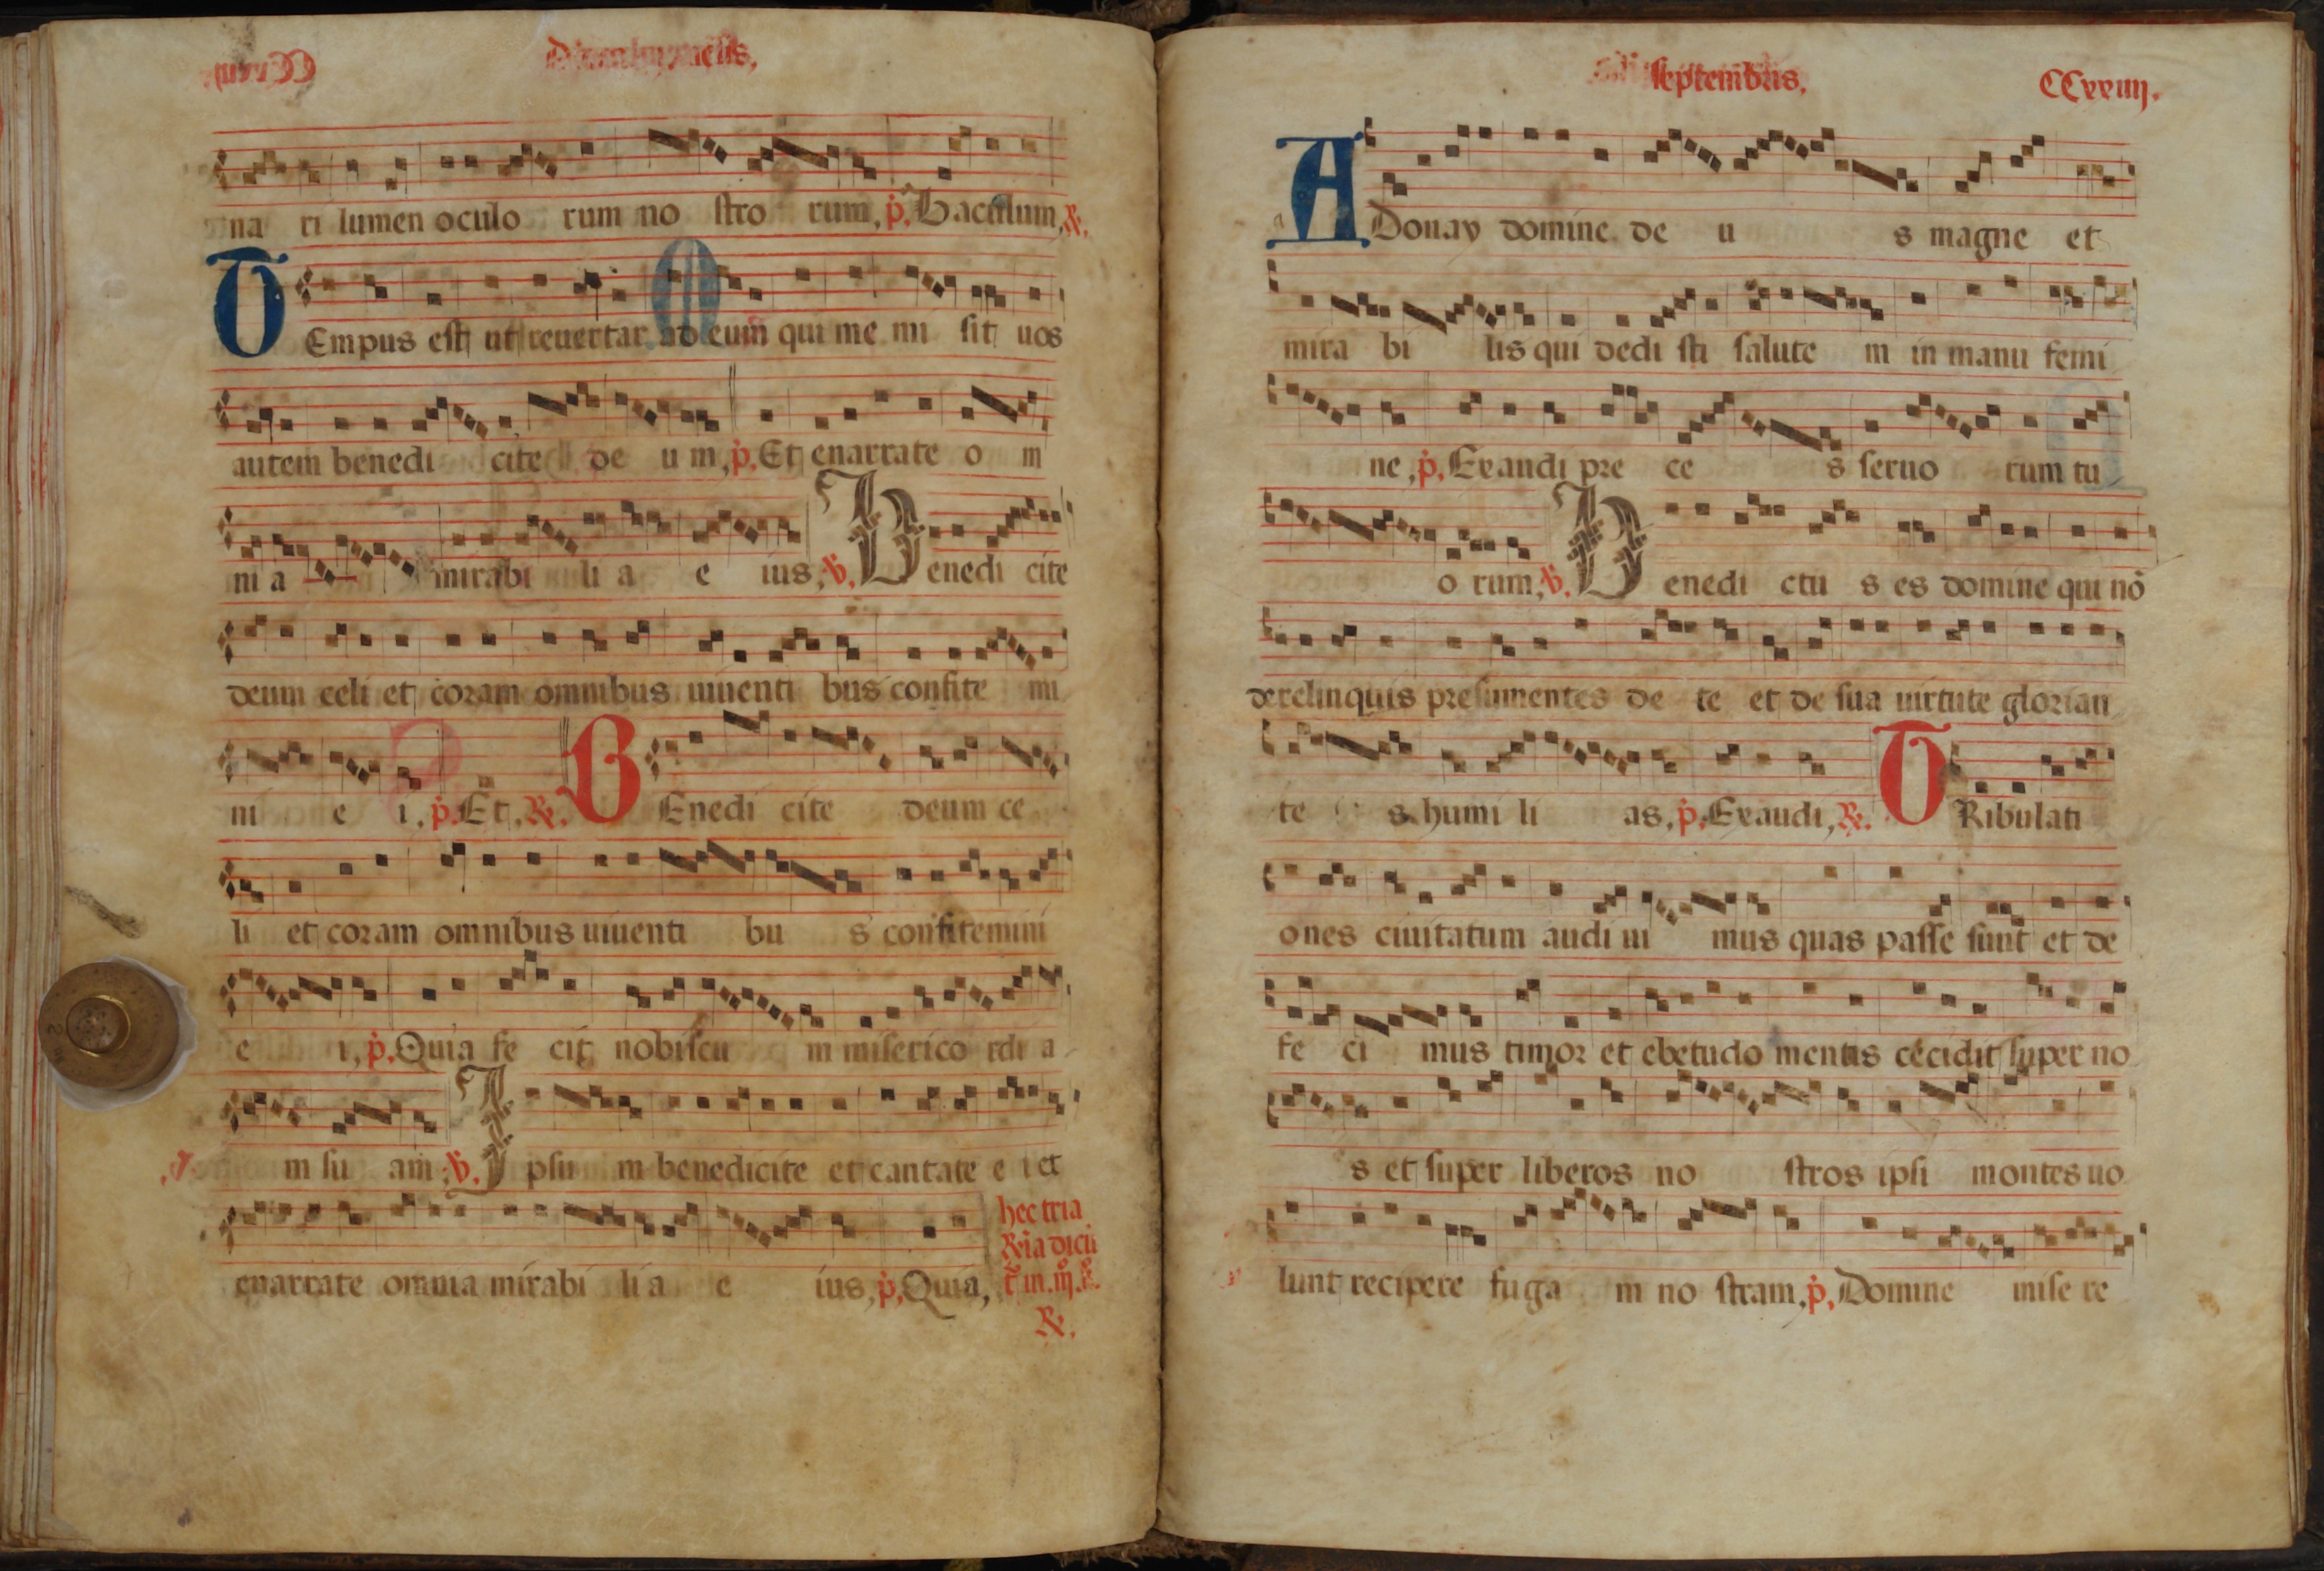 mēsis,
na ri lumen oculo rum no stro rum, p̄, Baculum, ℟.
TEmpus est ut reuertar ad eum qui me mi sit uos
autem benedi cite de u m, p̄, Et enarrate o m
ni a mirabi li a e ius, ℣. Benedi cite
deum celi et coram omnibus uiuenti bus confite mi
ni e i, p̄, Et, ℟. BEnedi cite deum ce
li et coram omnibus uiuenti bu s confitemini
e i, p̄, Quia fe cit nobiscu m miserico rdi a
m su am, ℣. Ipsu m benedicite et cantate e i et
enarrate omnia mirabi li a e ius, p̄, Quia,
hec tria
℟ia dicū
t̄ in. iij. f̄.
℟.
septembris,
CCxxiiij.
ADonay domine de u s magne et
mira bi lis qui dedi sti salute m in manu femi
ne, p̄, Exaudi pre ce s seruo rum tu
o rum, ℣. Benedi ctu s es domine qui nō
derelinquis presumentes de te et de sua uirtute glorian
te s humi li as, p̄, Exaudi, ℟. TRibulati
ones ciuitatum audi ui mus quas passe sunt et de
fe ci mus timor et ebetudo mentis cecidit super no
s et super liberos no stros ipsi montes uo
lunt recipere fuga m no stram, p̄, Domine mise re